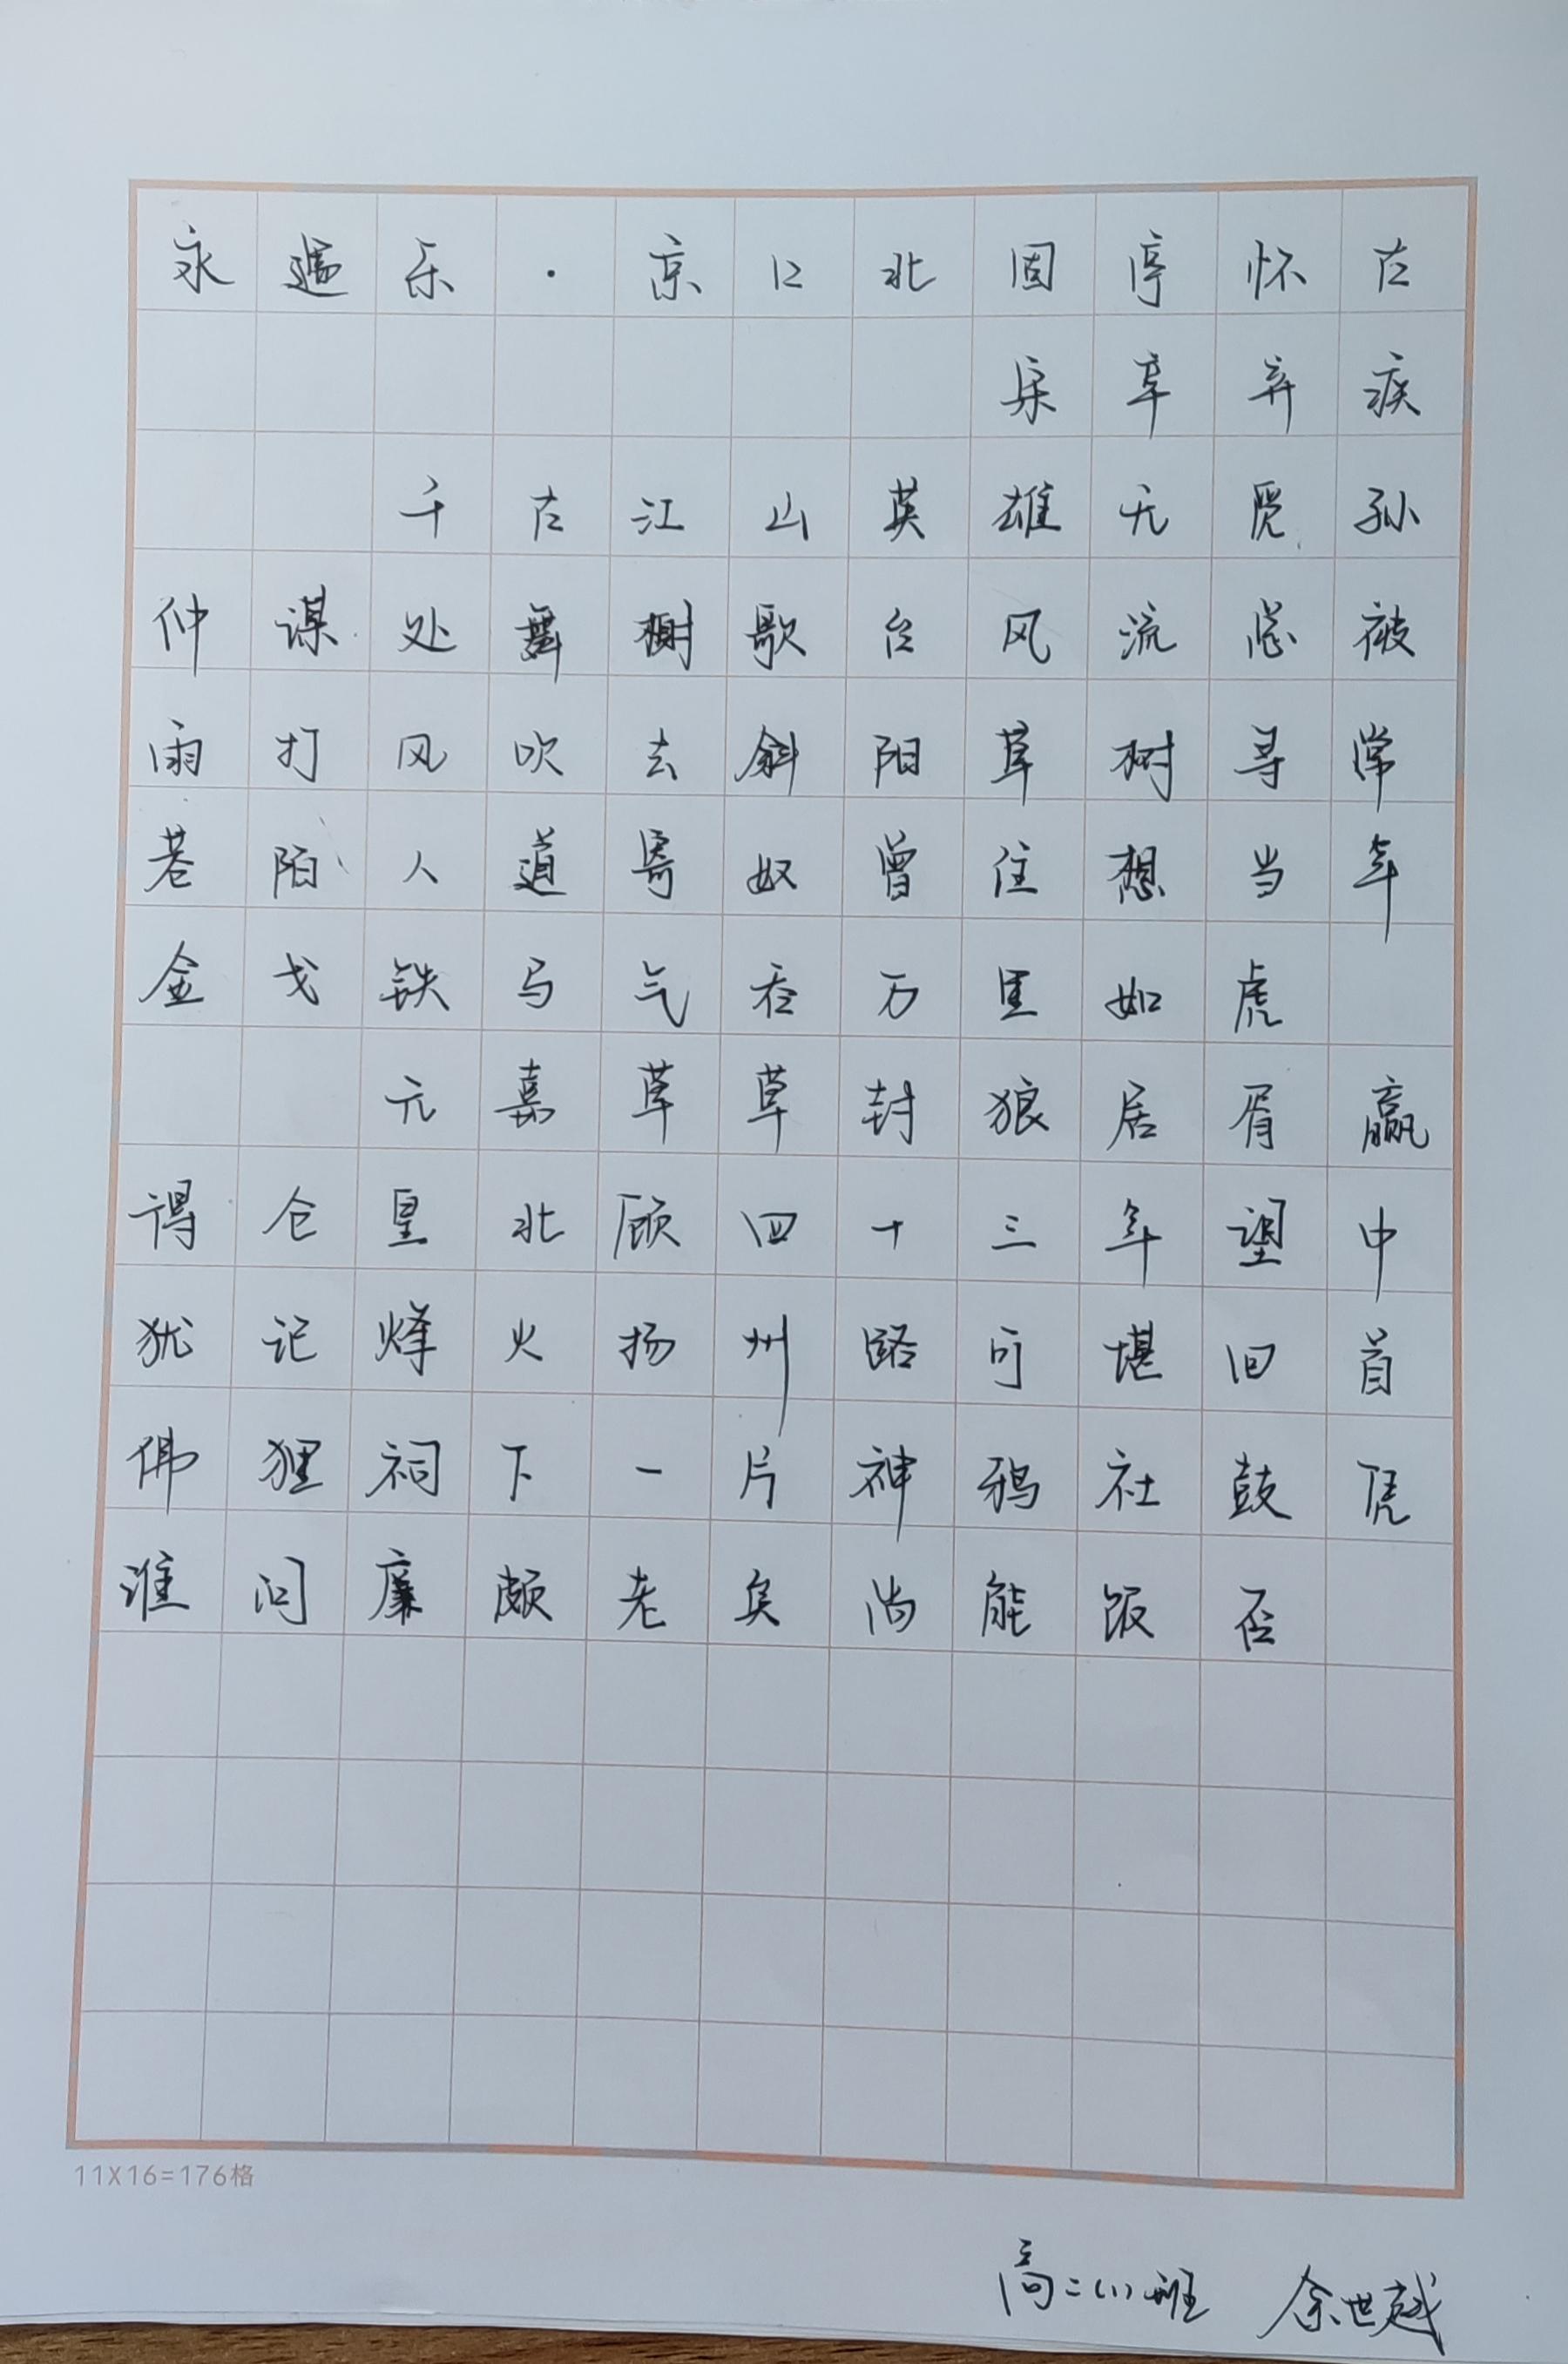 永遇乐·京口北固亭怀古
宋辛弃疾
千古江山英雄无觅孙
仲谋处舞榭歌台风流总被
雨打风吹去斜阳草树寻常
巷陌人道寄奴曾住想当年
金戈铁马气吞万里如虎
元嘉草草封狼居胥赢
得仓皇北顾四十三年望中
犹记烽火扬州路可堪回首
佛狸祠下一片神鸦社鼓凭
谁问廉颇老矣尚能饭否
11X16=176格
高二(1)班 余世越